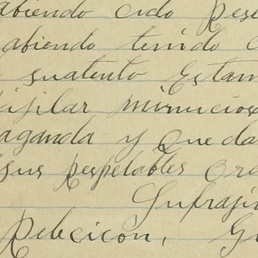 abiendo cido pese
abiendo tenido
suatento Estam
vijilar minucios
aganda y queda
sus respetables ord
Sufrajio
Relecicon, G